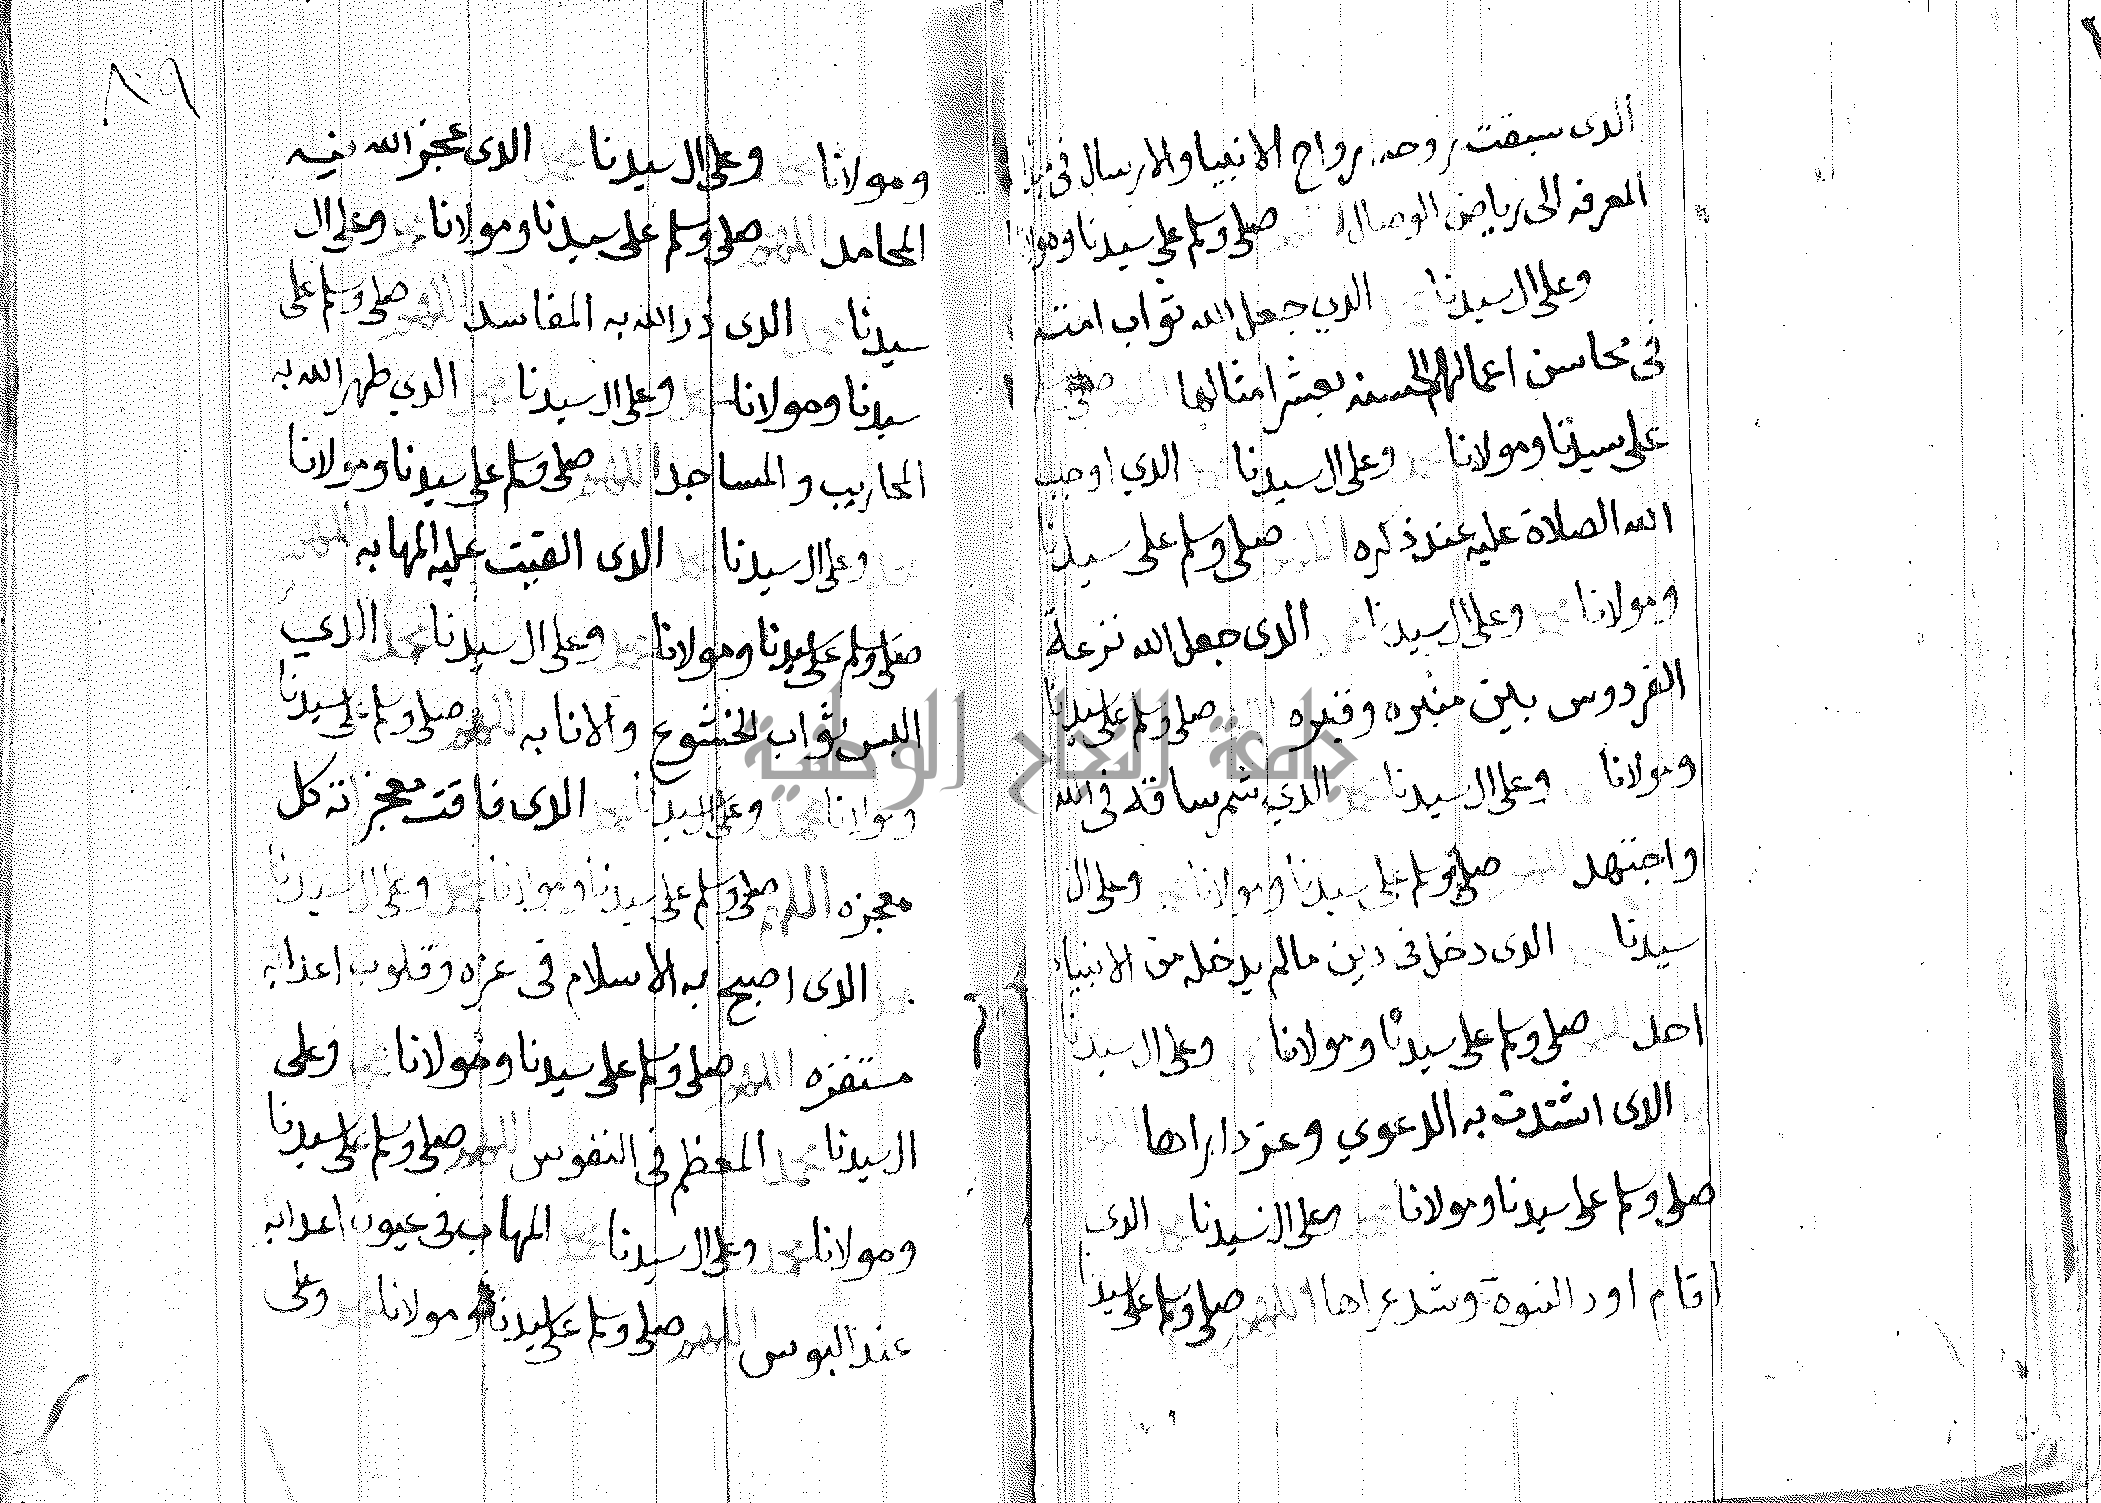 الذى سبقت روحه رواح الانبيا والارسال فى
المعرفه الى رياض الوصال صلى وسلم على سيدنا ومولانا
وعلى ال سيدنا الذي جعل الله ثواب امته
فى محاسن اعمالهم الحسنه بعشر امثالها
على سيدنا ومولانا وعلى ال سيدنا الذي اوجب
الله الصلاة عليه عند ذكره اللهم صلى وسلم على سيدنا
ومولانا وعلى ال سيدنا الذى جعل الله نزعة
الفردوس بين منبره وقبره صلى وسلم على سيدنا
ومولانا وعلى ال سيدنا الذي شمر ساقه فى الله
واجتهد صلى وسلم على سيدنا ومولانا وعلى ال
سيدنا الذى دخل فى دين مالم يدخله من الانبياء
احد صلى وسلم على سيدنا ومولانا وعلى ال سيدنا
الذى اشتدت به الدعوي وعز
صلى وسلم على سيدنا ومولانا وعلى ال سيدنا الذي
اقام اود النبوة وشد عراها اللهم صلى وسلم على سيدنا
٨٠٩
ومولانا وعلى ال سيدنا الذى عجز الله
المحامد اللهم صلى وسلم على سيدنا ومولانا وعلى ال
سيدنا الذى الله به المفاسد اللهم صلى وسلم على
سيدنا ومولانا وعلى ال سيدنا الذي طهر الله به
المحاريب والمساجد اللهم صلى وسلم على سيدنا ومولانا
وعلى ال سيدنا الذى القيت عليه المهابه اللهم
صلى وسلم على سيدنا ومولانا وعلى ال سيدنا محمد الذي
البس ثواب الخشوع والانابه اللهم صلى وسلم على سيدنا
ومولانا محمد وعلى ال سيدنا الذى فاقت معجزاته كل
معجزه اللهم صلى وسلم على سيدنا ومولانا وعلى ال سيدنا
الذى اصبح به الاسلام فى عزه وقلوب اعدايه
مستفزه اللهم صلى وسلم على سيدنا ومولانا وعلى
ال سيدنا محمد المعظم فى النفوس اللهم صلى وسلم على سيدنا
ومولانا محمد وعلى ال سيدنا المهاب فى عيون اعدايه
عند البوس اللهم صلى وسلم على سيدنا ومولانا وعلى
جامعة النجاح الوطنية